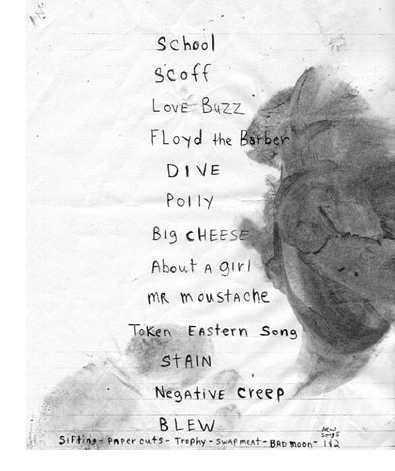 School
Scoff
Love Buzz
Floyd the Barber
DIVE
Polly
Big CHEESE
About A girl
MR moustache
Token Eastern Song
STAIN
Negative creep
BLEW
NEW
SONGS
Sifting - PAPER CUTS - Trophy - SWAP MEAT - BAD moon - 1&2